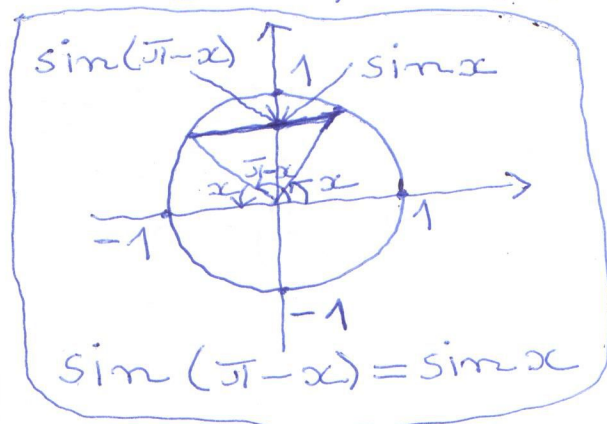 sin(π-x) 1 sin x
π-x
x x
-1 1
-1
sin (π-x) = sin x